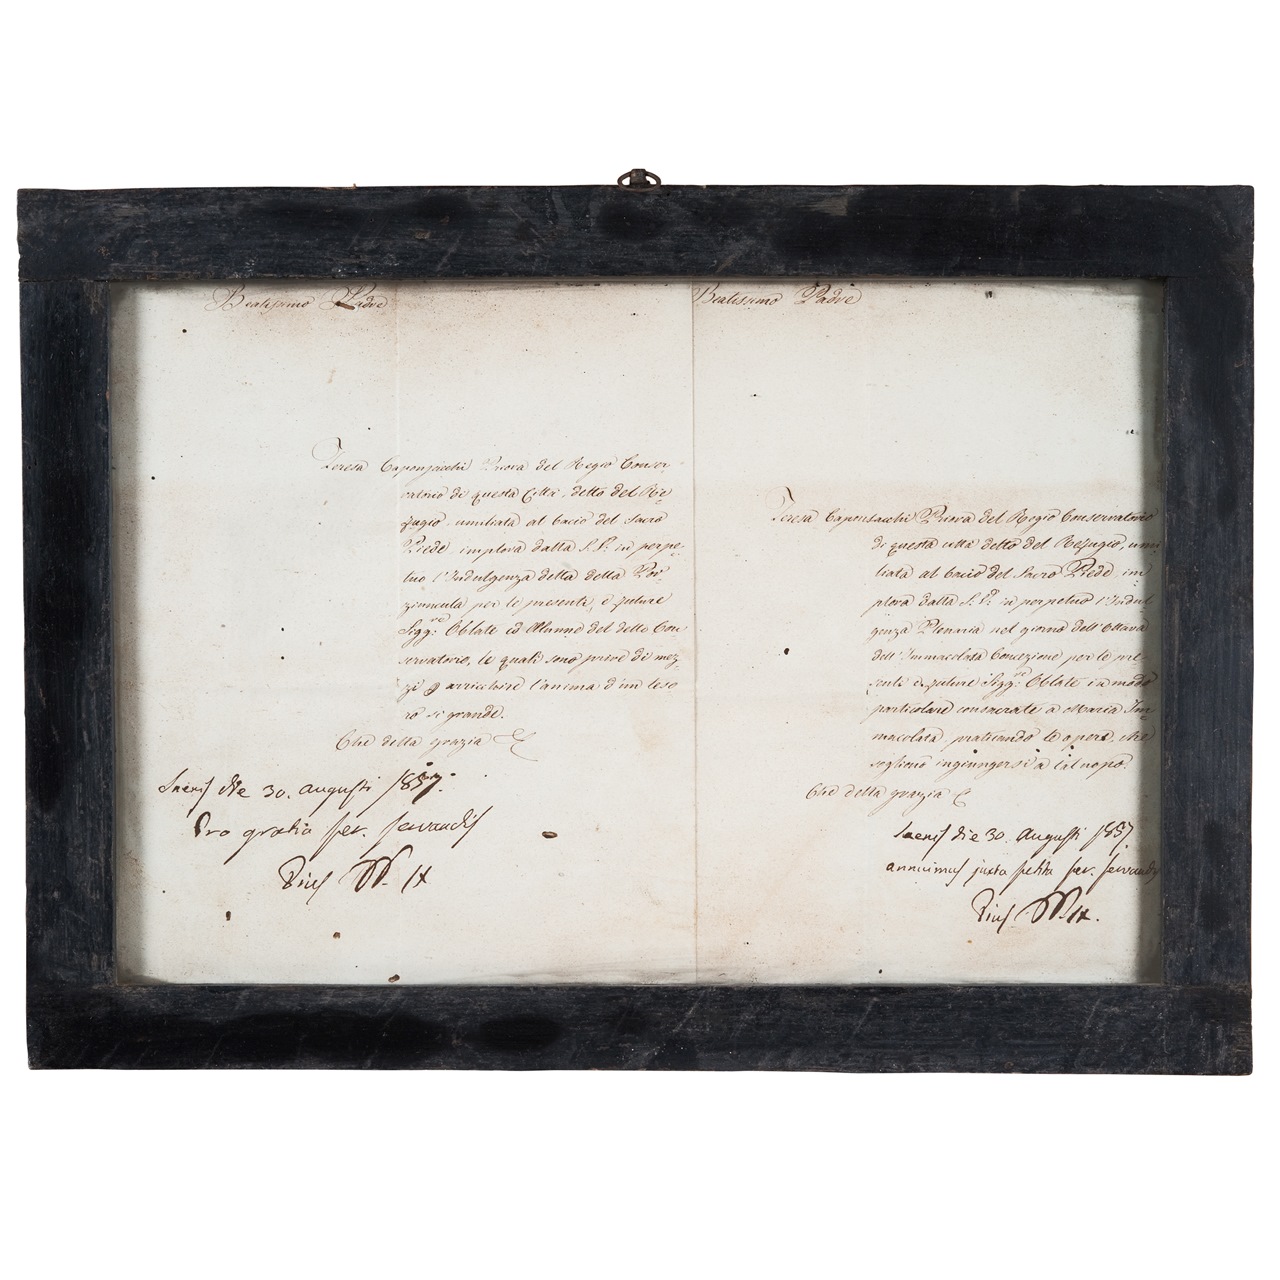 Beatissimo Padre
Teresa Caponsacchi Priora del Regio Conser-
vatorio di questa Città, detto del Re-
fugio, umiliata al bacio del Sacro
Piede implora dalla S. V. in perpe-
tuo l'Indulgenza detta della Por-
ziuncula per le presenti, e future
Sigg.re Oblate ed Alunne del detto Con-
servatorio, le quali sono prive di mez-
zi p arricchire l'anima d'un teso-
ro si grande.
Che della grazia &
Senis die 30. Augusti 1857.
Pro gratia ser. servandis
Pius PP. IX
Beatissimo Padre
Teresa Caponsacchi Priora del Regio Conservatorio
di questa città detto del Refugio, umi-
liata al bacio del Sacro Piede, im-
plora dalla S. V. in perpetuo l'Indul-
genza Plenaria nel giorno dell'Ottava
dell'Immacolata Concezione per le pre-
senti e future Sigg.re Oblate in modo
particolare consacrate a Maria Im-
macolata, praticando le opere, che
sogliono ingiungersi a tal uopo.
Che della grazia &
Senis die 30. Augusti 1857
annuimus juxta petita ser. servandis
Pius PP. IX.